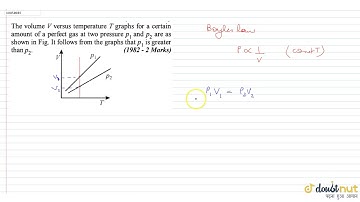 The volume V versus temperature T graphs for a certain
amount of a perfect gas at two pressure p₁ and p₂ are as
shown in Fig. It follows from the graphs that p₁ is greater
than p₂.
(1982 - 2 Marks)
V
p₁
p₂
V₁
V₂
T
Boyle's law
P ∝ 1/V (const T)
P₁V₁ = P₂V₂
doubtnut